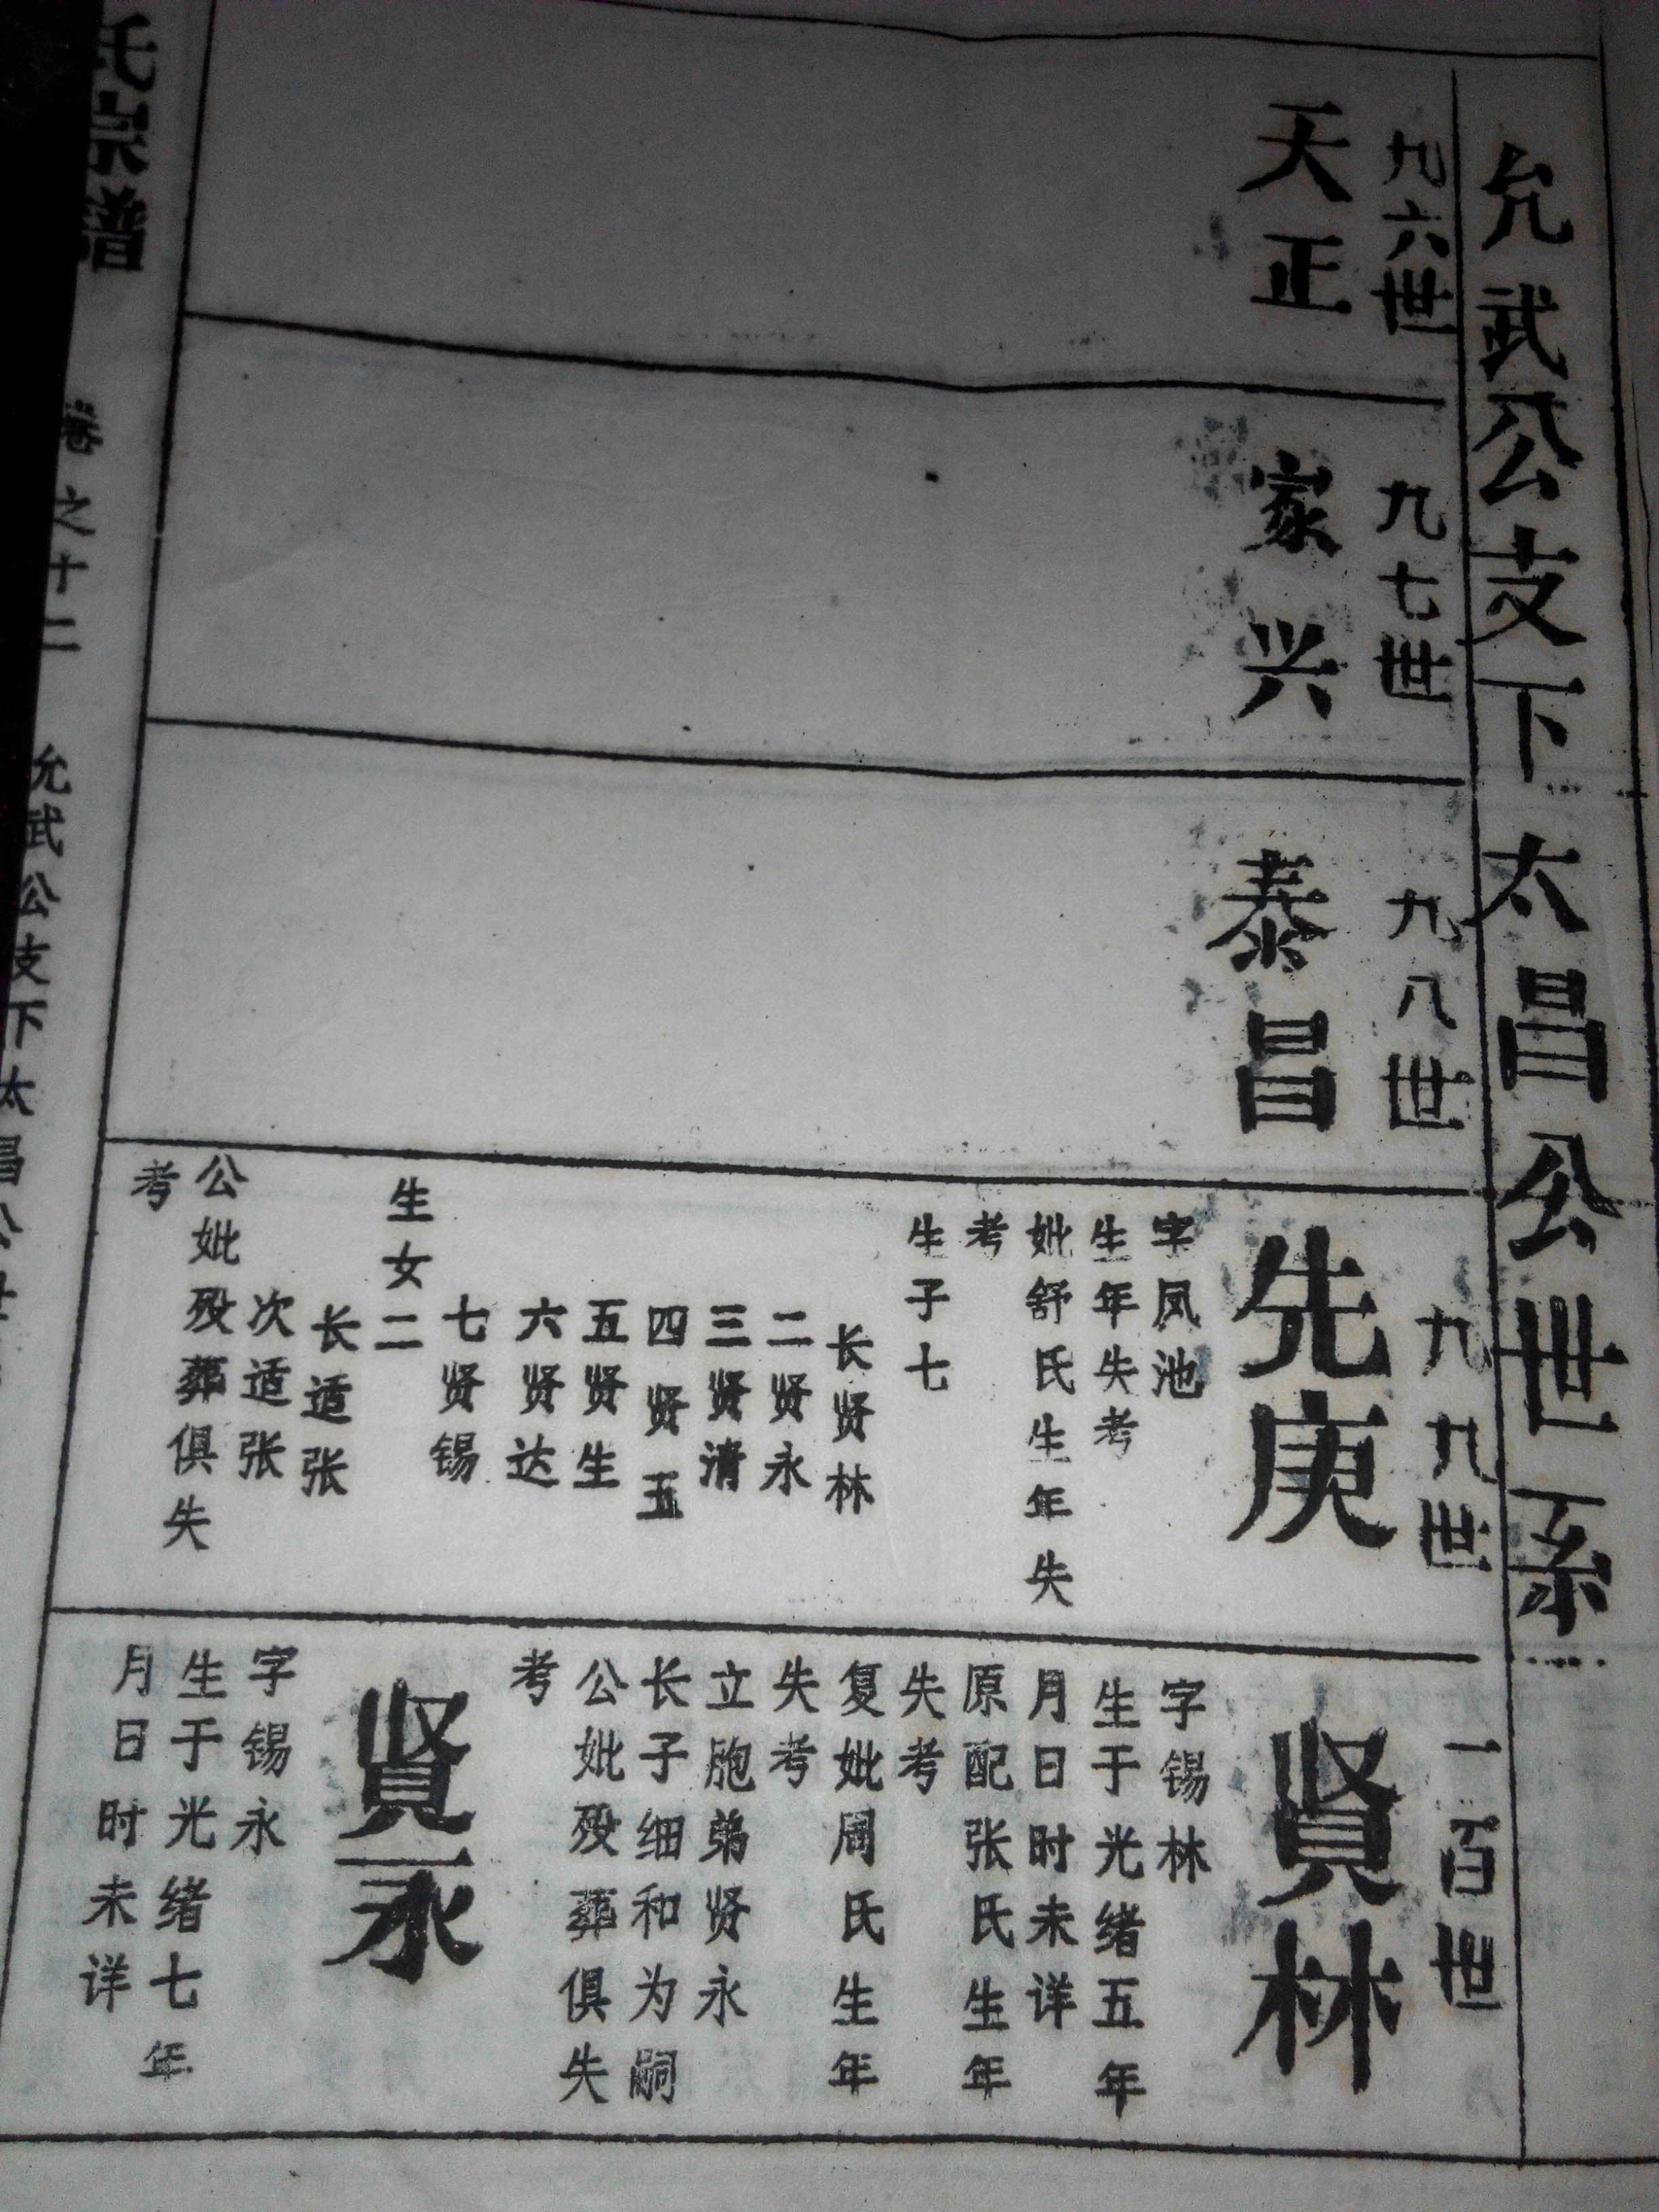 允武公支下太昌公世系
九六世
天正
九七世
家兴
九八世
泰昌
九九世
先庚
字凤池
生年失考
妣舒氏生年失
考
生子七
长贤林
二贤永
三贤清
四贤五
五贤生
六贤达
七贤锡
生女二
长适张
次适张
公妣殁葬俱失
考
一百世
贤林
字锡林
生于光绪五年
月日时未详
原配张氏生年
失考
复妣周氏生年
失考
立胞弟贤永
长子细和为嗣
公妣殁葬俱失
考
贤永
字锡永
生于光绪七年
月日时未详
氏宗谱
卷之十二
允武公支下太昌公世